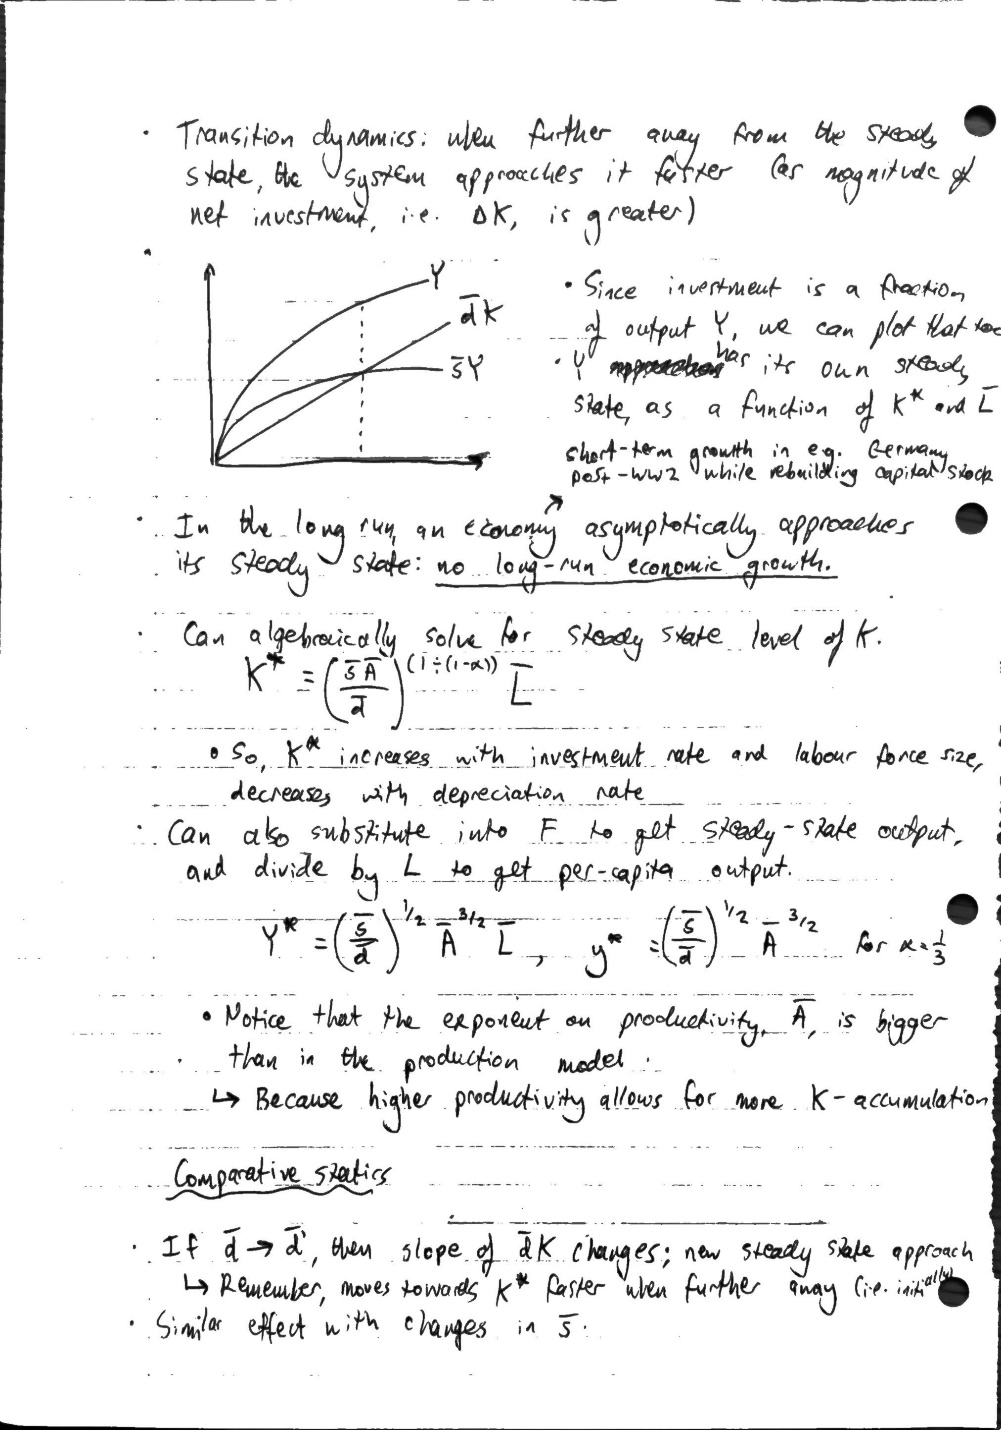 · Transition dynamics: when further away from the steady
state, the system approaches it faster (as magnitude of
net investment, i.e. ΔK, is greater)
Y
d̄K
s̄Y
• Since investment is a fraction
of output Y, we can plot that too
• Y has its own steady
state, as a function of K* and L̄
short-term growth in e.g. Germany
post-WW2 while rebuilding capital stock
· In the long run, an economy asymptotically approaches
its steady state: no long-run economic growth.
· Can algebraically solve for steady state level of K.
K* = (s̄Ā/d̄)^(1÷(1-α)) L̄
• So, K* increases with investment rate and labour force size,
decreases with depreciation rate
· Can also substitute into F to get steady-state output,
and divide by L to get per-capita output.
Y* = (s̄/d̄)^1/2 Ā^3/2 L̄, y* = (s̄/d̄)^1/2 Ā^3/2 for α=1/3
• Notice that the exponent on productivity, Ā, is bigger
than in the production model.
↳ Because higher productivity allows for more K-accumulation
Comparative statics
· If d̄ → d̄', then slope of d̄K changes; new steady state approach
↳ Remember, moves towards K* faster when further away (i.e. initially)
· Similar effect with changes in s̄.